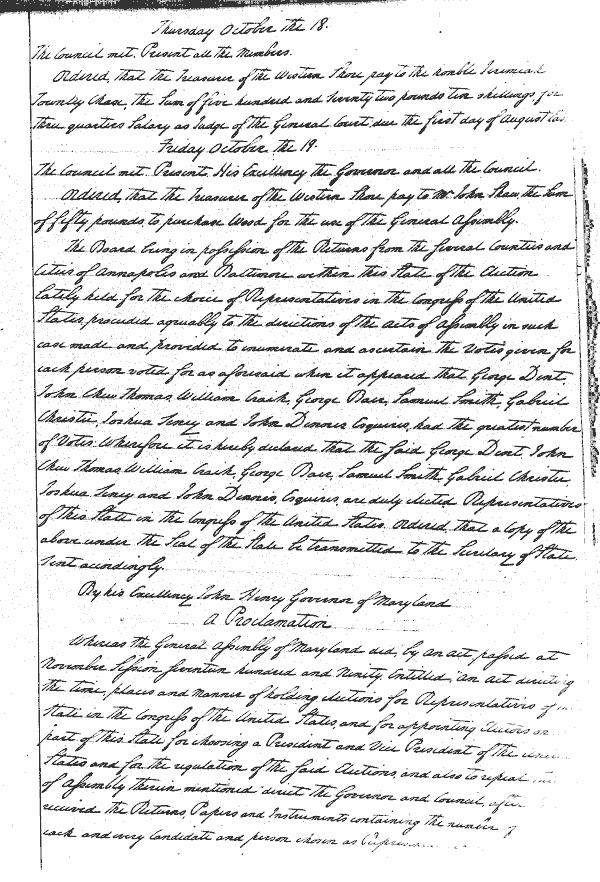 Thursday October the 18.
The Council met. Present all the Members.
Ordered, that the Treasurer of the Western Shore pay to the honble Jeremiah
Townly Chase, the Sum of five hundred and seventy two pounds ten shillings for
three quarters Salary as Judge of the General Court, due the first day of August
Friday October the 19.
The Council met. Present, His Excellency the Governor and all the Council.
Ordered, that the Treasurer of the Western Shore pay to Mr. John Shaw, the Sum
of fifty pounds, to purchase Wood for the use of the General Assembly.
The Board being in possession of the Returns from the several Counties and
Cities of Annapolis and Baltimore within this State of the Election
lately held for the choice of Representatives in the Congress of the United
States, proceeded agreeably to the directions of the Acts of Assembly in such
case made and provided to enumerate and ascertain the Votes given for
each person voted for as aforesaid when it appeared that George Dent,
John Chew Thomas, William Craik, George Baer, Samuel Smith, Gabriel
Christie, Joshua Seney and John Dennis Esquires, had the greatest number
of Votes. Wherefore it is hereby declared that the said George Dent, John
Chew Thomas, William Craik, George Baer, Samuel Smith, Gabriel Christie,
Joshua Seney and John Dennis, Esquires, are duly elected Representatives
of this State in the Congress of the United States. Ordered, that a Copy of the
above under the Seal of the State be transmitted to the Secretary of State
Sent accordingly.
By his Excellency John Henry Governor of Maryland
A Proclamation
Whereas the General Assembly of Maryland did, by an act passed at
November Session seventeen hundred and Ninety, Entitled, an act directing
the time, places and manner of holding elections for Representatives of
State in the Congress of the United States, and for appointing Electors on
part of this State for choosing a President and Vice President of the
States and for the regulation of the said Elections, and also to repeal
of Assembly therein mentioned direct the Governor and Council, after
received the Returns, Papers and Instruments containing the number of
each and every Candidate and person chosen as